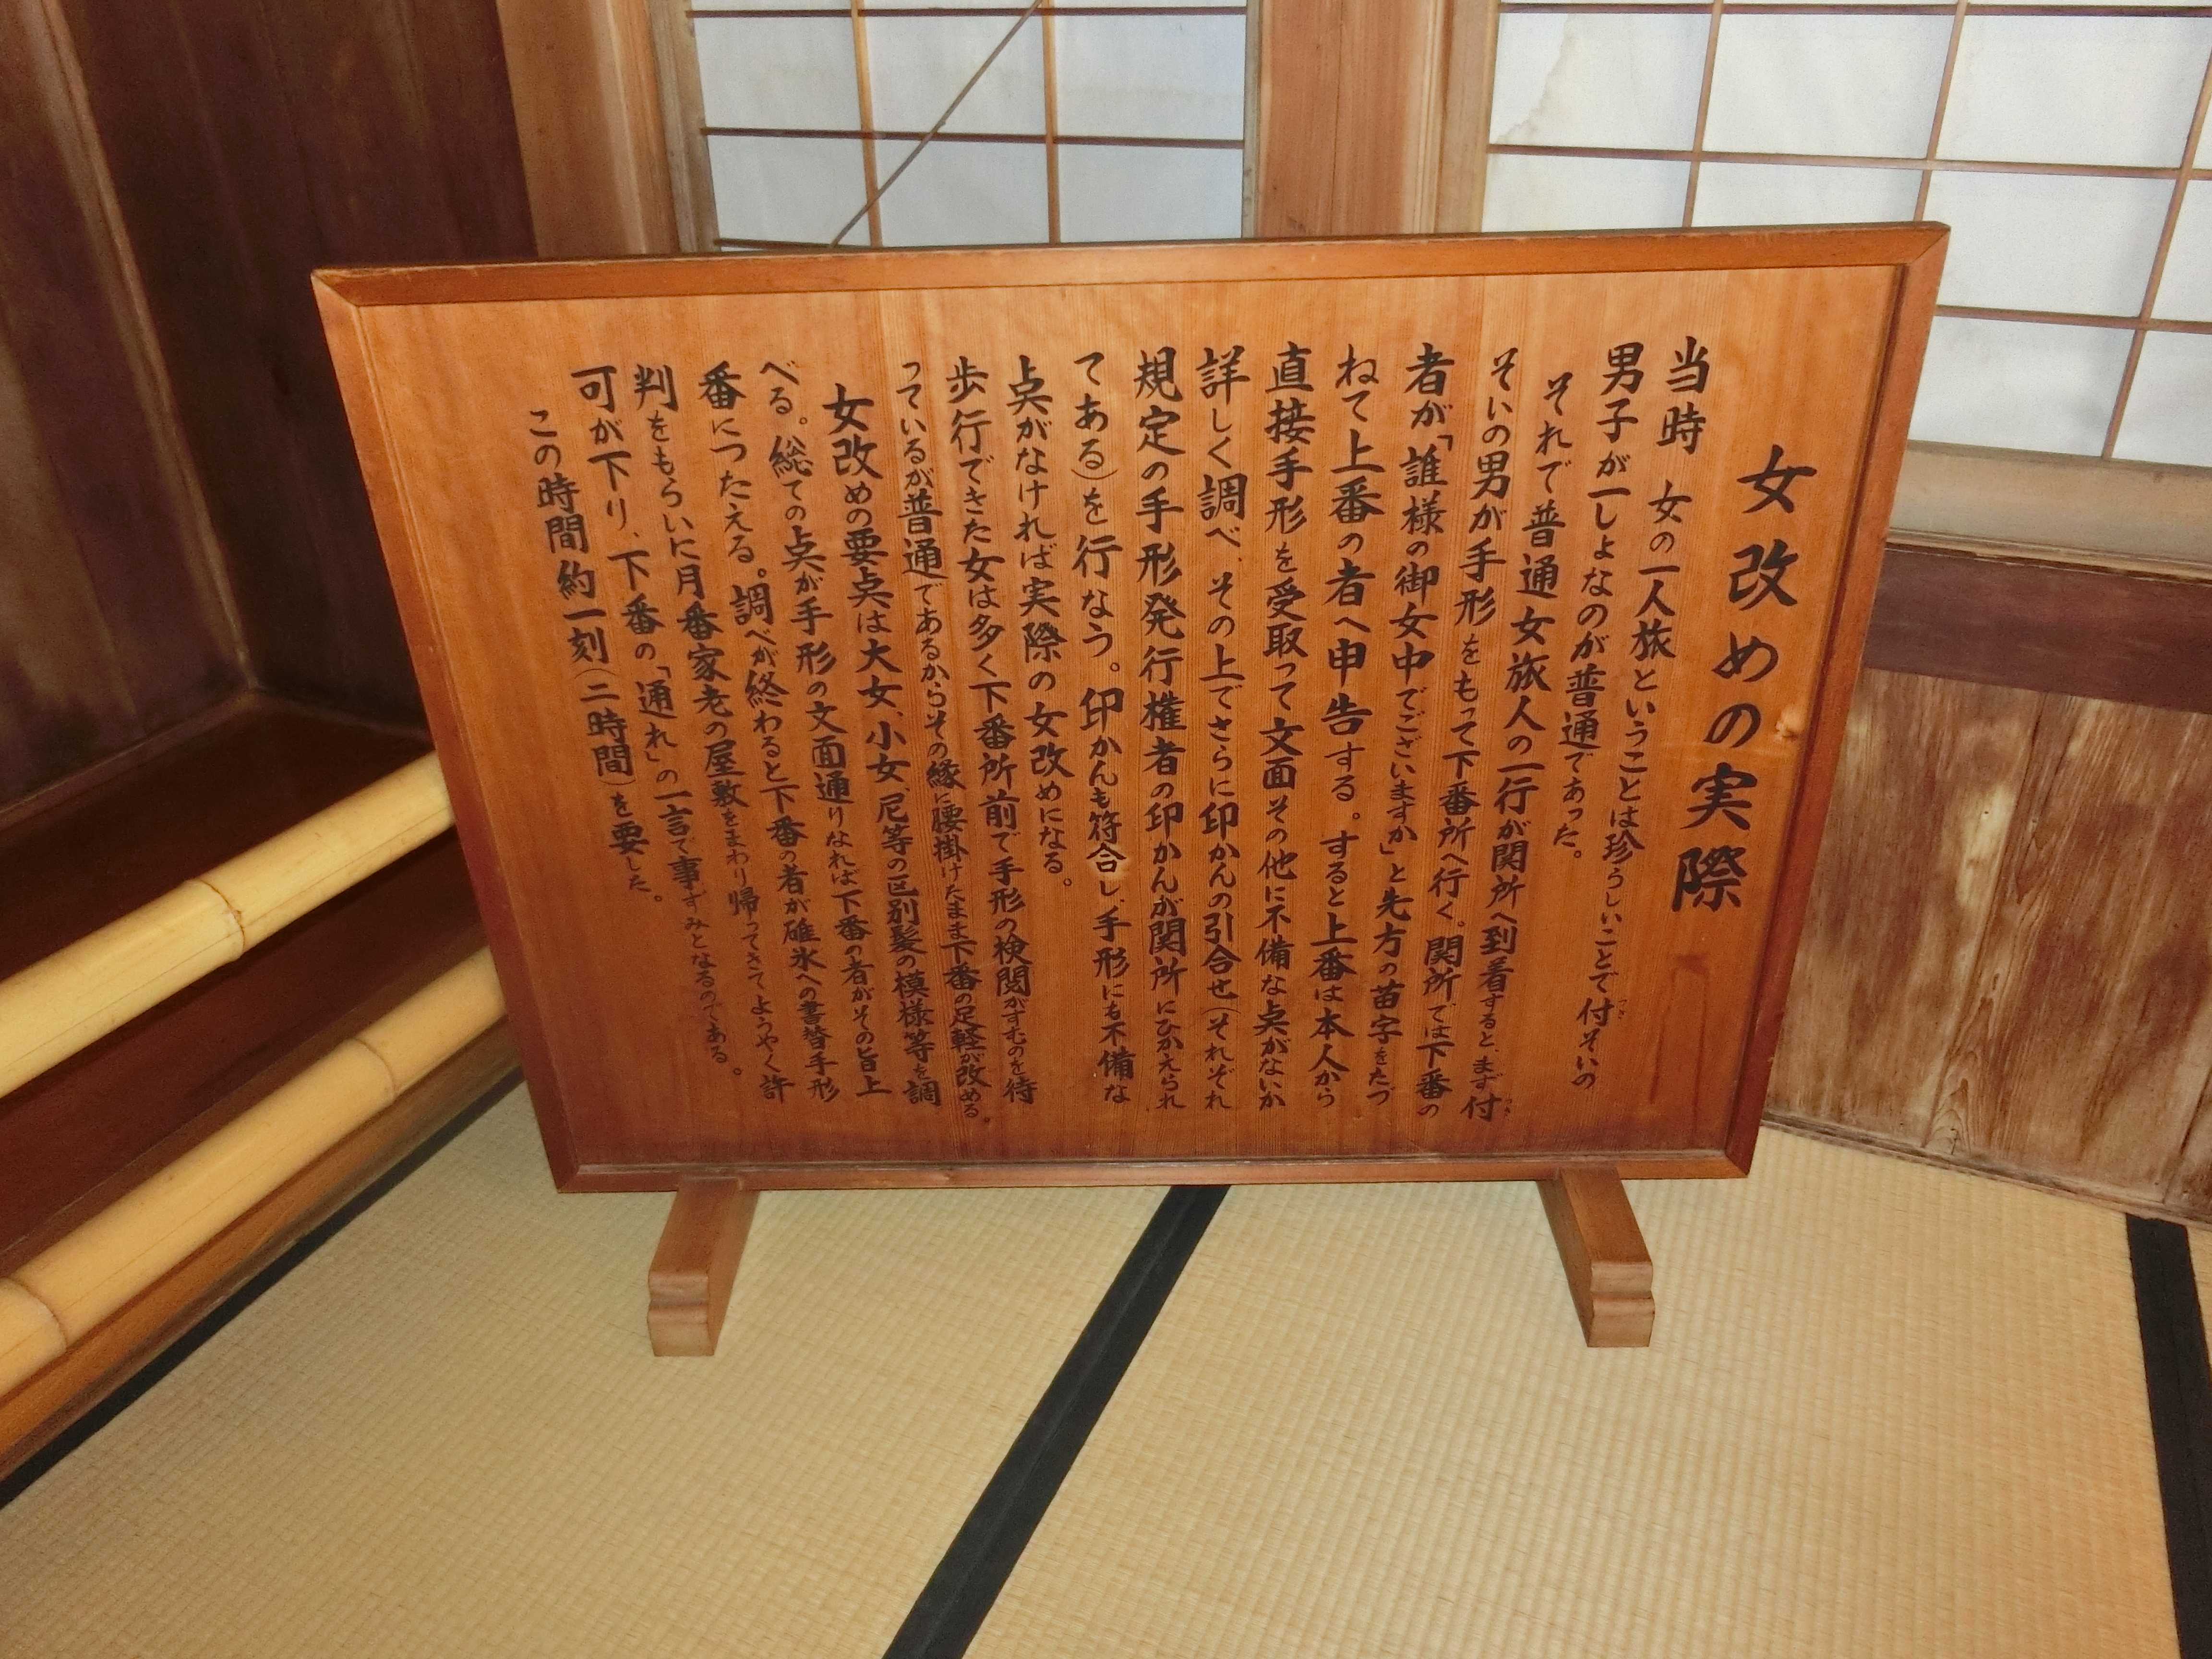 女改めの実際
当時 女の一人旅ということは珍らしいことで付そいの
男子が一しょなのが普通であった。
それで普通女旅人の一行が関所へ到着すると、まず付
そいの男が手形をもって下番所へ行く。関所では下番の
者が「誰様の御女中でございますか」と先方の苗字をたづ
ねて上番の者へ申告する。すると上番は本人から
直接手形を受取って文面その他に不備な点がないか
詳しく調べ、その上でさらに印かんの引合せ(それぞれ
規定の手形発行権者の印かんが関所にひかえられ
てある)を行なう。印かんも符合し、手形にも不備な
点がなければ実際の女改めになる。
歩行できた女は多く下番所前で手形の検閲がすむのを待
っているが普通であるからその縁に腰掛けたまま下番の足軽が改める。
女改めの要点は大女、小女、尼等の区別髪の模様等を調
べる。総ての点が手形の文面通りなれば下番の者がその旨上
番につたえる。調べが終わると下番の者が碓氷への書替手形
判をもらいに月番家老の屋敷をまわり帰ってきてようやく許
可が下り、下番の「通れ」の一言で事ずみとなるのである。
この時間約一刻(二時間)を要した。